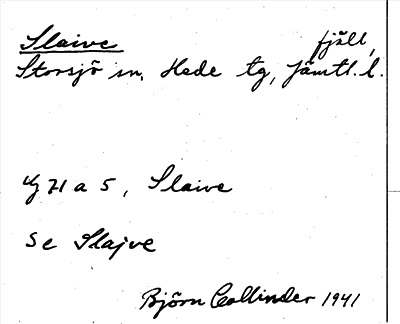 Slaive fjäll,
Storsjö sn, Hede tg, Jämtl. l.
71 a 5, Slaive
Se Slajve
Björn Collinder 1941